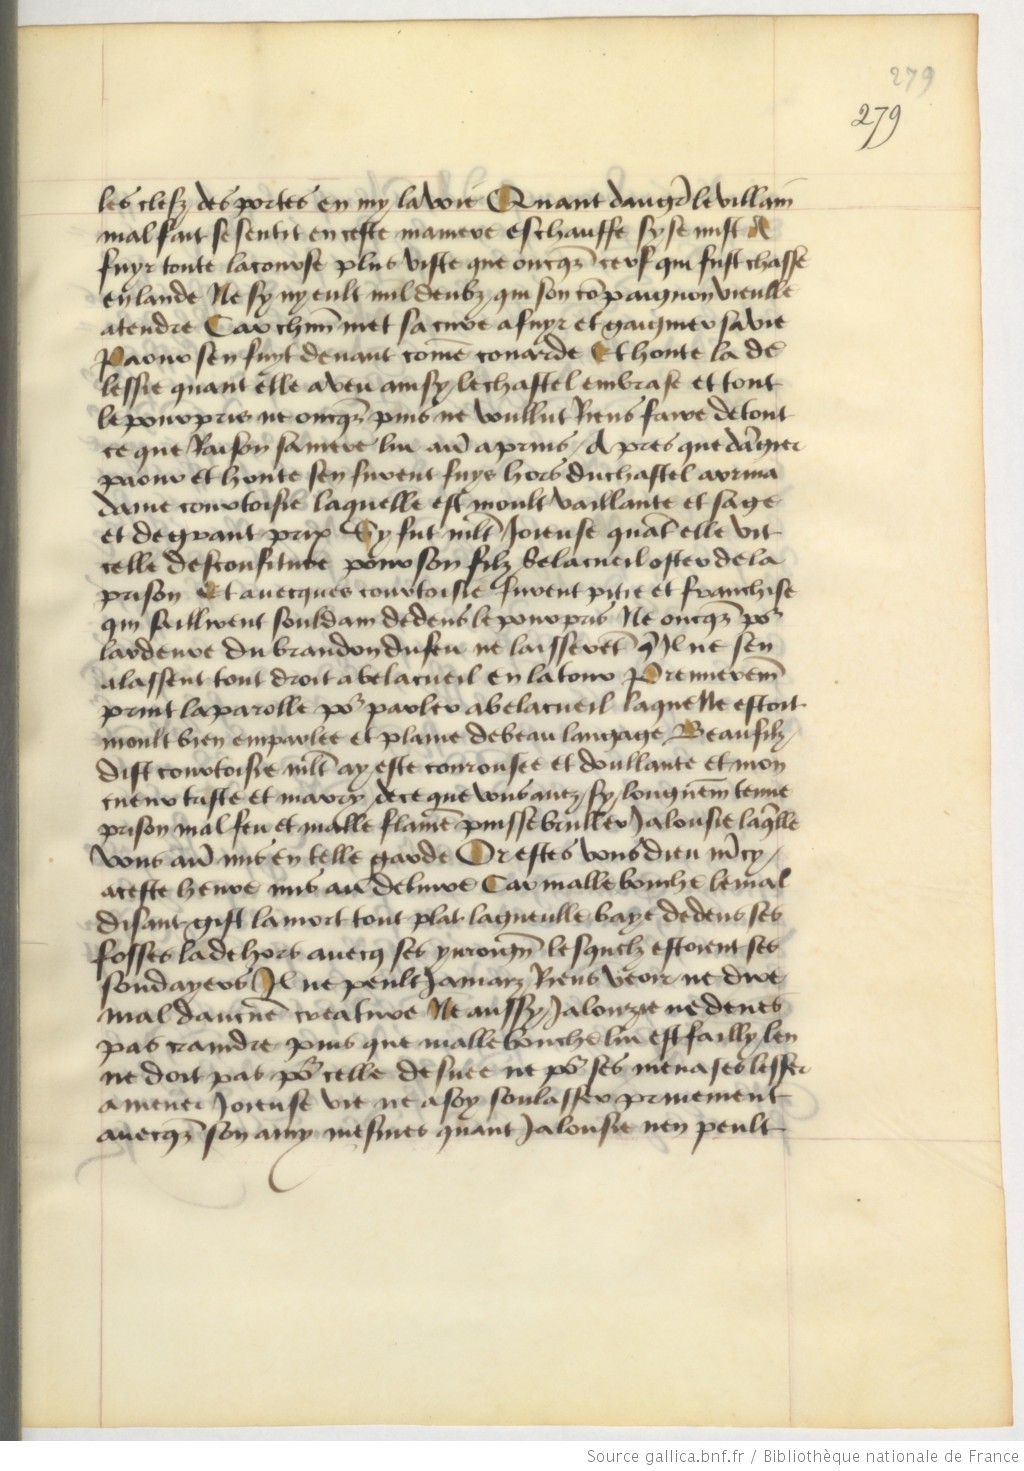 279
279
les clefz des portes en my la voie Quant dangr̃ le villain
mal fait se sentit en ceste maniere eschauffe sy se mist A
fuyr toute la course plus viste que oncqz̃ cerf qui fust chasse
en lande Ne sy ny eult nul deulz qui son cõpaignon vieulle
atendre Car chm̃ met sa cure a fuyr et gaigner sa vie
Paour sen fuyt devant cõme couarde Et honte la de
lessie quant elle a veu ainsy le chastel embrase et tout
le pourpris ne oncqz̃ puis ne voullut Riens faire de tout
ce que Raison sa mere lui aũ aprins / A pres que dãgier
paour et honte sen furent fuys hors du chastel arriua
dame courtoisie laquelle est moult vaillante et sage
et de grant prix Sy fut mlt̃ Joieuse quãt elle vit
celle desconfiture pour son filz belacueil oster de la
prison Et auecques courtoisie furent pitie et franchise
qui saillirent souldain dedens le pourpris Ne oncqz̃ po᷑
lardeure du brandon du feu ne laisserẽt q̃ Jl ne sen
alassent tout droit a belacueil en la tour Premierem̃
print la parolle po᷑ parler a belacueil laquelle estoit
moult bien emparlee et plaine de beau langage Beau filz
dist courtoisie mlt̃ ay este courousee et doullante et mon
cueur triste et marry de ce que vous auez sy longuem̃ tenue
prison mal feu et malle flame puisse bruller Jalousie laq̃lle
vous aũ mis en telle garde Or estes vous dieu m̃cy /
a ceste heure mis au deliure Car malle bouche le mal
disant gist la mort tout plat la gueulle baye dedens ses
fosses la dehors auecq ses yurongñ lesquelz estoient ses
soudayers Jl ne peult Jamaiz Riens veoir ne dire
mal daucũe creature Ne aussy Jalouzie ne deues
pas craindre puis que malle bouche lui est failly len
ne doit pas po᷑ celle desuee ne po᷑ ses menases lesser
a mener Joieuse vie ne a soy soulasser priuement
auecqz̃ son amy mesmes quant Jalousie nen peult
Source gallica.bnf.fr / Bibliothèque nationale de France